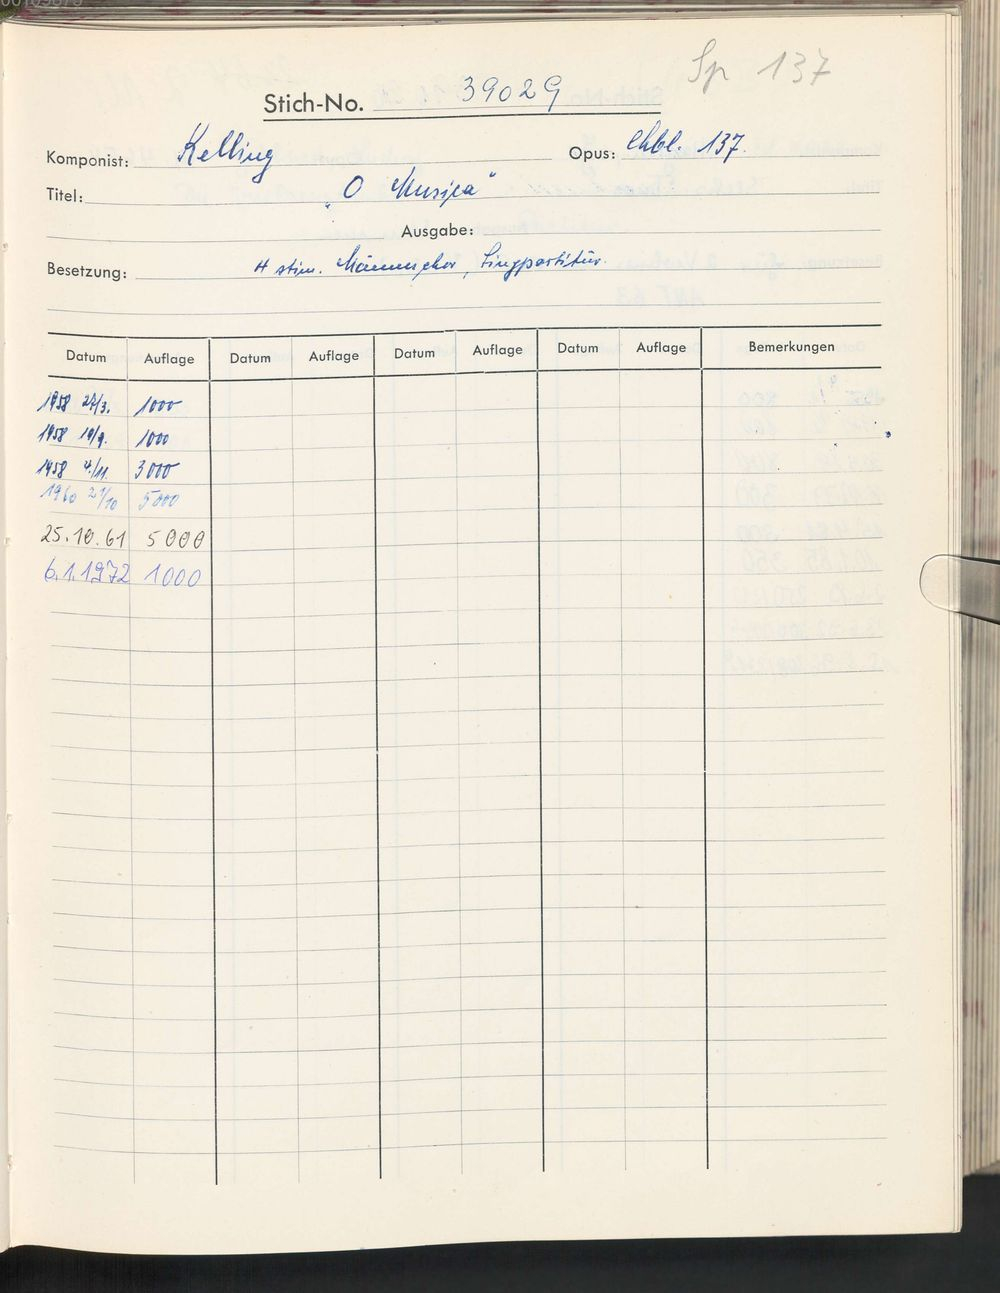 Sp 137
Stich-No. 39029
Komponist: Kelling Opus: Chbl. 137.
Titel: "O Musica"
Ausgabe:
Besetzung: 4 stim. Männerchor, Singpartitur.
Datum Auflage Datum Auflage Datum Auflage Datum Auflage Bemerkungen
1958 27/3. 1000
1958 19/9. 1000
1958 4./11. 3000
1960 21/10 5000
25.10.61 5000
6.1.1972 1000